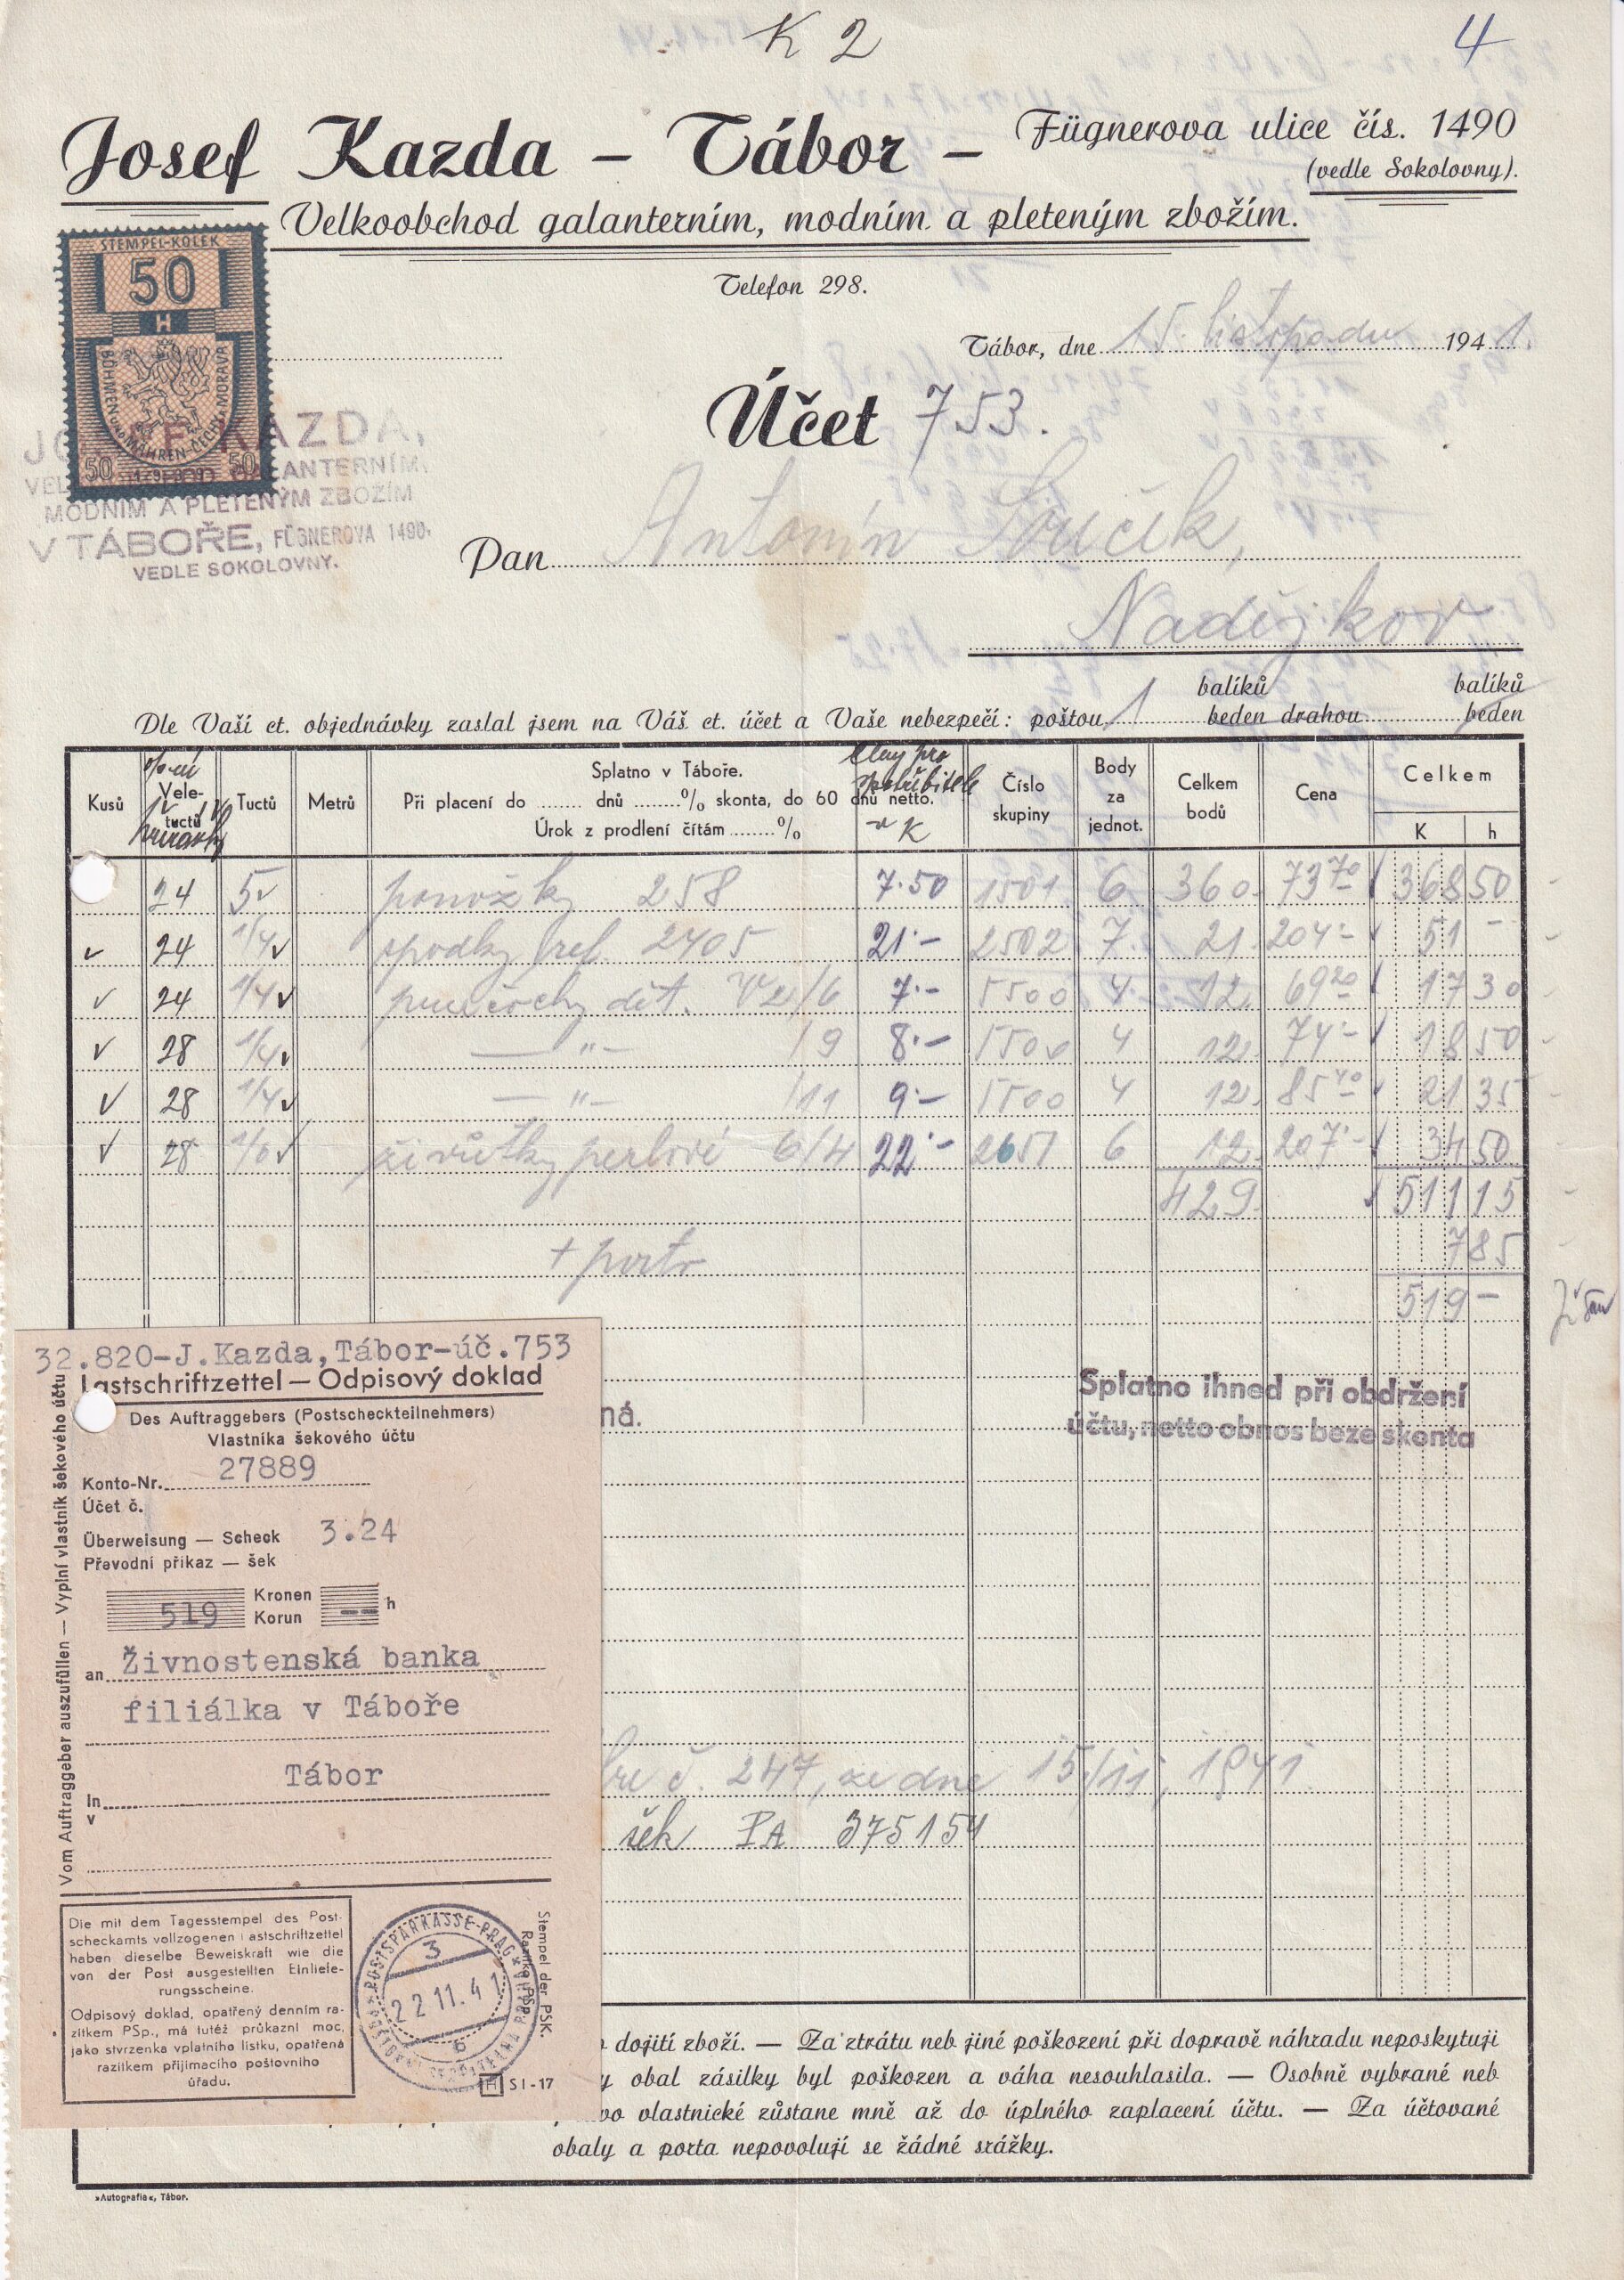 K 2
4
Josef Kazda – Tábor – Fügnerova ulice čís. 1490
(vedle Sokolovny).
Velkoobchod galanterním, modním a pleteným zbožím.
Telefon 298.
STEMPEL-KOLEK
50
H
BÖHMEN UND MÄHREN-ČECHY A MORAVA
50 50
Tábor, dne 15. listopadu 1941.
Účet 753.
KAZDA,
MODNÍM A PLETENÝM ZBOŽÍM
V TÁBOŘE, FÜGNEROVA 1490,
VEDLE SOKOLOVNY.
Pan Antonín Souček,
Nadějkov
Dle Vaší ct. objednávky zaslal jsem na Váš ct. účet a Vaše nebezpečí: poštou 1 balíků beden drahou balíků beden
Kusů Vele-tuctů Tuctů Metrů
Splatno v Táboře.
Při placení do ........ dnů ........% skonta, do 60 dnů netto.
Úrok z prodlení čítám ........%
Ceny pro spotřebitele v K
Číslo skupiny Body za jednot. Celkem bodů Cena Celkem K h
24 5 ponožky 258 7·50 1501 6 360 73 70 368 50
24 1/4 spodky 2405 21·– 2502 7 21 204·– 51 –
24 1/4 punčochy dět. V2/6 7·– 5500 4 12 69 20 17 30
28 1/4 –"– /9 8·– 5500 4 12 74·– 18 50
28 1/4 –"– /11 9·– 5500 4 12 85 40 21 35
28 1/6 živůtky perlové 6/4 22·– 2651 6 12 207·– 34 50
429 511 15
+ porto 7 85
519 –
Splatno ihned při obdržení
účtu, netto obnos beze skonta
ná.
32.820-J.Kazda,Tábor-úč.753
Lastschriftzettel – Odpisový doklad
Des Auftraggebers (Postscheckteilnehmers)
Vlastníka šekového účtu
Konto-Nr. 27889
Účet č.
Überweisung — Scheck 3.24
Převodní příkaz — šek
519 Kronen Korun -- h
an Živnostenská banka
filiálka v Táboře
Tábor
In
v
Vom Auftraggeber auszufüllen — Vyplní vlastník šekového účtu
č. 247, ze dne 15/11, 1941
šek PA 375154
Die mit dem Tagesstempel des Post-
scheckamts vollzogenen Lastschriftzettel
haben dieselbe Beweiskraft wie die
von der Post ausgestellten Einliefe-
rungsscheine.
Odpisový doklad, opatřený denním ra-
zítkem PSp., má tutéž průkazní moc,
jako stvrzenka vplatního lístku, opatřená
razítkem přijímacího poštovního
úřadu.
POSTSPARKASSE-PRAG
3
22 11. 41
6
Stempel der PSK.
Razítko PSp.
H S I - 17
dojití zboží. — Za ztrátu neb jiné poškození při dopravě náhradu neposkytuji
y obal zásilky byl poškozen a váha nesouhlasila. — Osobně vybrané neb
vo vlastnické zůstane mně až do úplného zaplacení účtu. — Za účtované
obaly a porta nepovolují se žádné srážky.
»Autografia«, Tábor.